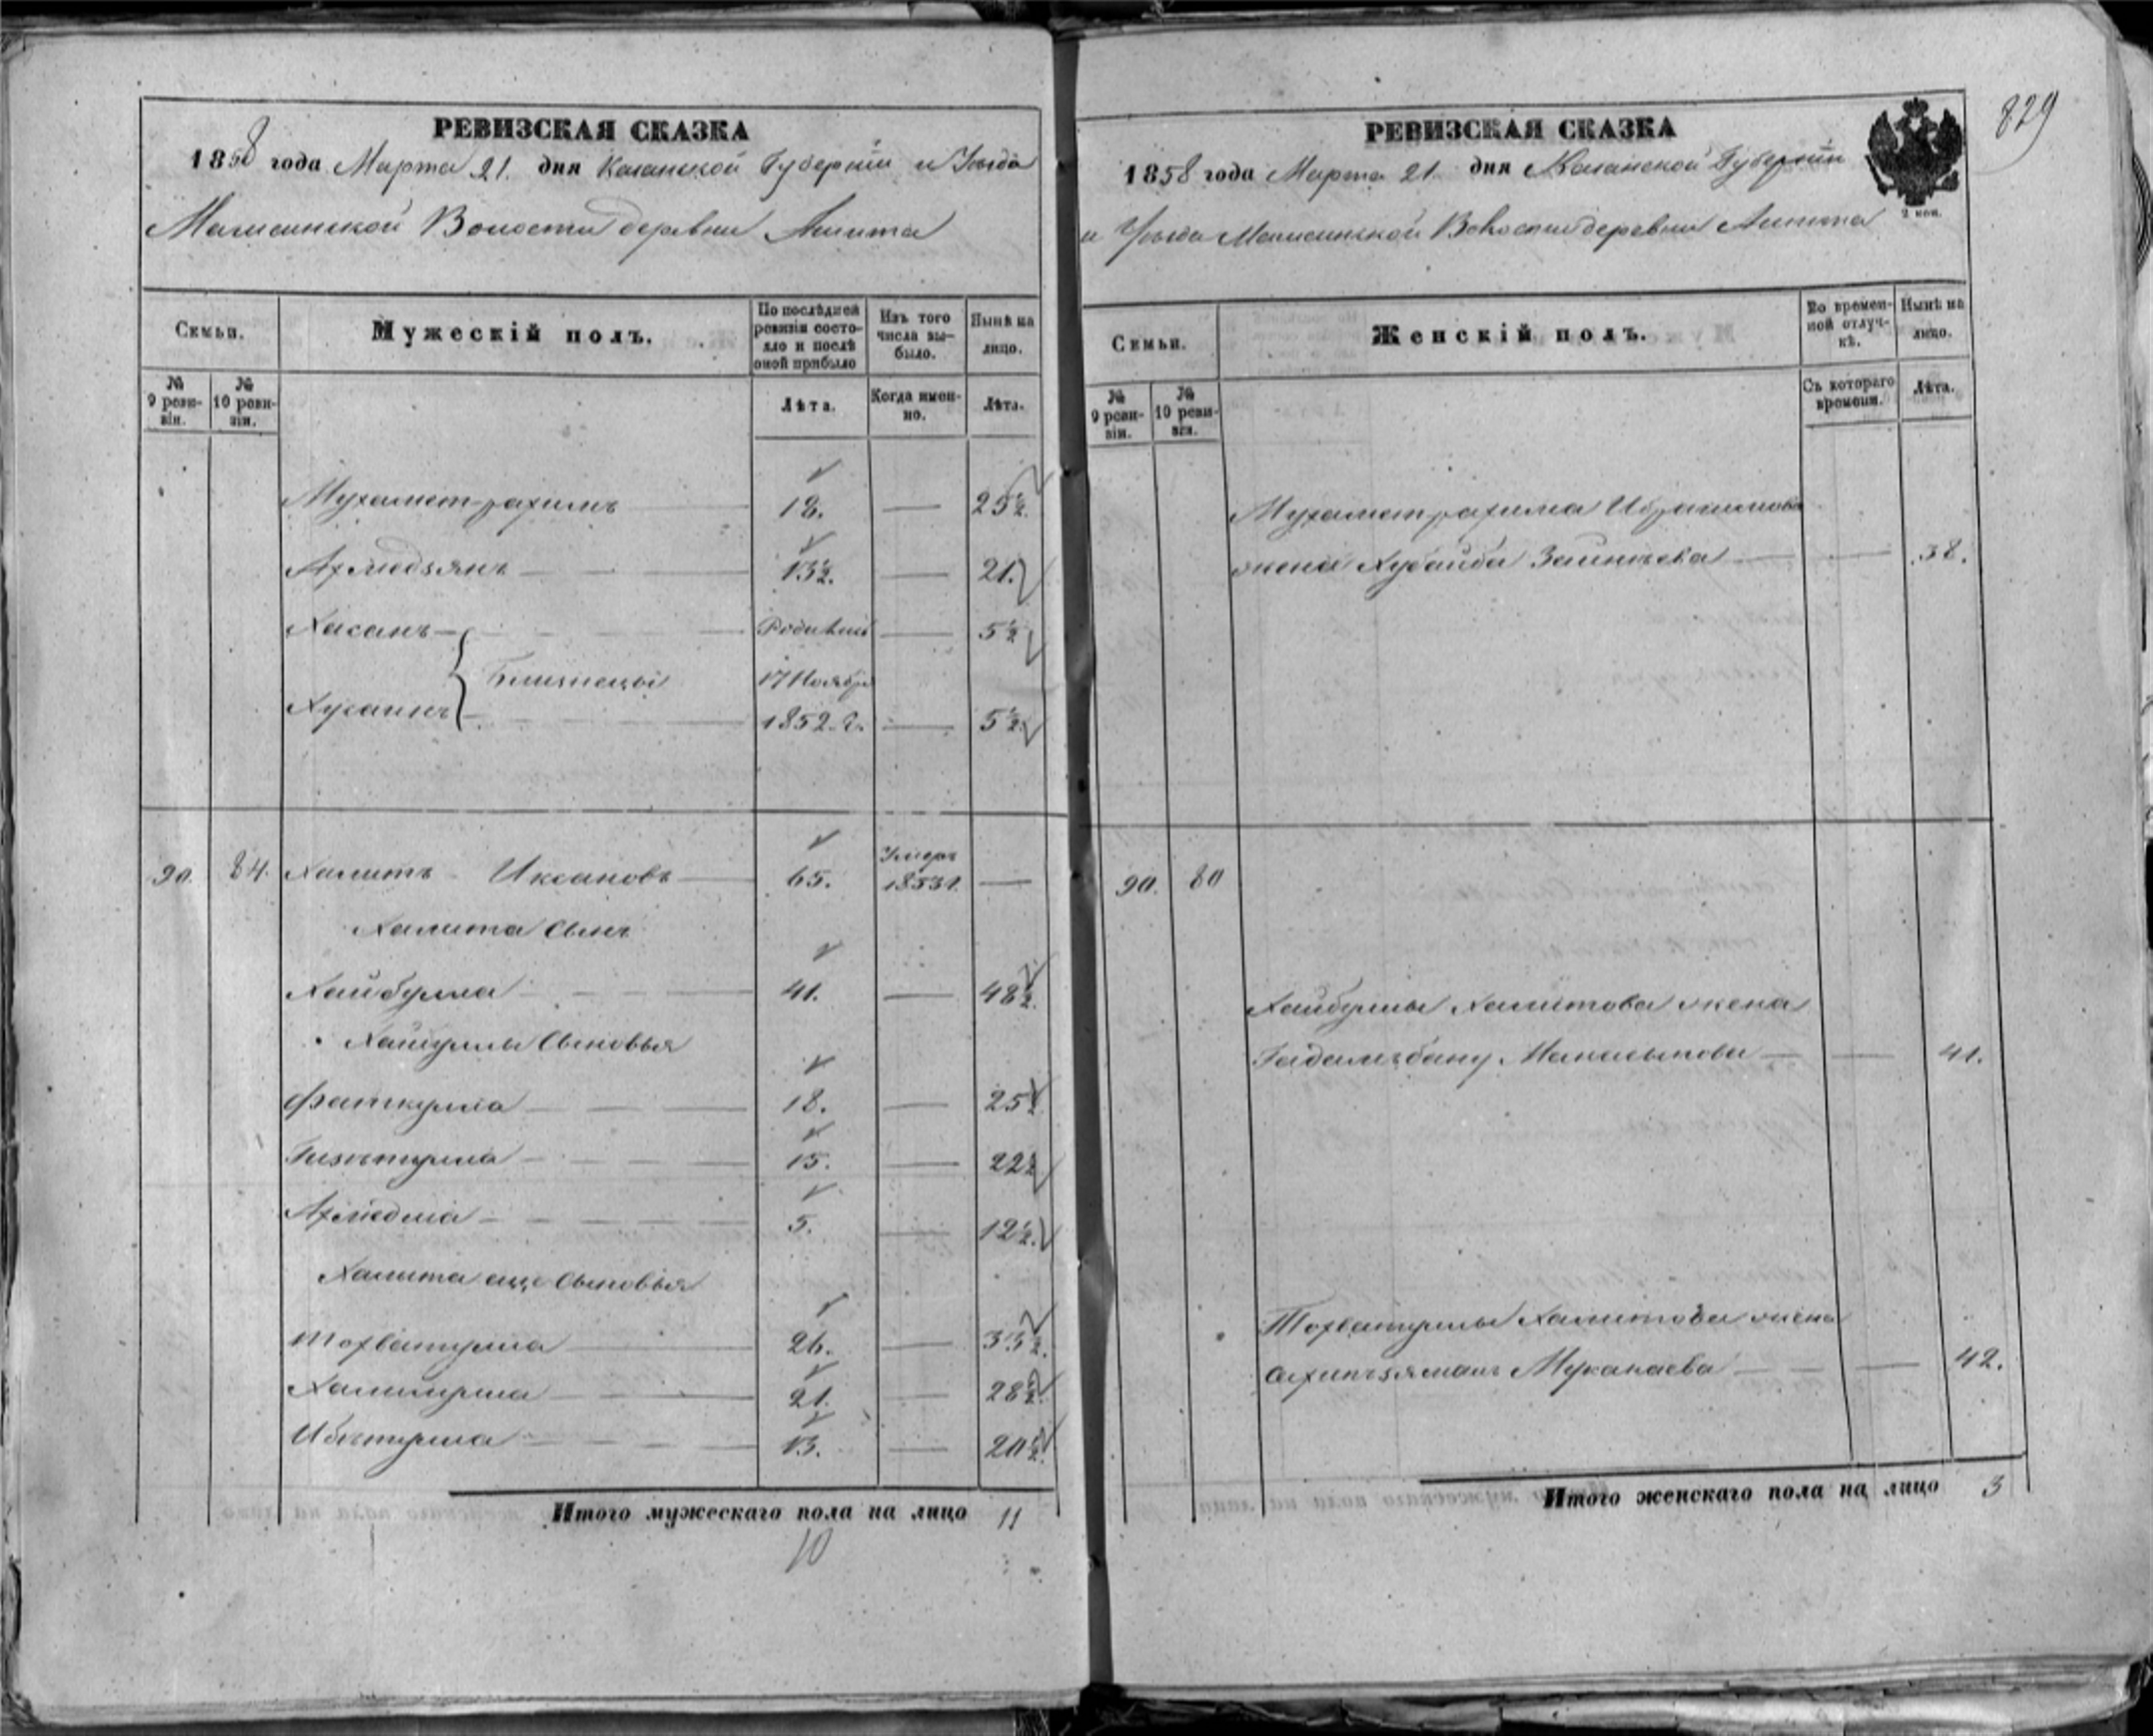 РЕВИЗСКАЯ СКАЗКА
1858 года Марта 21. дня Казанской Губерніи и Уѣзда
Мамсинской Волости деревни Ашита
Семьи.
Мужескій полъ.
По послѣдней ревизіи состояло и послѣ оной прибыло
Изъ того числа выбыло.
Нынѣ на лицо.
№ 9 ревизіи.
№ 10 ревизіи.
Лѣта.
Когда именно.
Лѣта.
Мухаметрахимъ 18. — 25½.
Ахмедзянъ 13½. — 21.
Хасанъ Родились — 5½
Близнецы 17 Ноября
Хусаинъ 1852. г. — 5½
90. 84. Халитъ Иксановъ 65. Умеръ 1853 г. —
Халита Сынъ
Хайбулла 41. — 48½.
Хайбуллы Сыновья
Фаткулла 18. — 25½
Гизетулла 15. — 22½
Ахмедша 5. — 12½.
Халита еще Сыновья
Тохватулла 26. — 33½.
Халиулла 21. — 28½
Ибетулла 13. — 20½.
Итого мужескаго пола на лицо 11
10
829
РЕВИЗСКАЯ СКАЗКА
2 коп.
1858 года Марта 21. дня Казанской Губерніи
и Уѣзда Мамсинской Волости деревни Ашита
Семьи.
Женскій полъ.
Во временной отлучкѣ.
Нынѣ на лицо.
№ 9 ревизіи.
№ 10 ревизіи.
Съ котораго времени.
Лѣта.
Мухаметрахима Ибрагимова
жена Хубайба — 38.
90. 80
Хайбуллы Халитова жена
— 41.
Тохватуллы Халитова жена
Муканаева — 42.
Итого женскаго пола на лицо 3